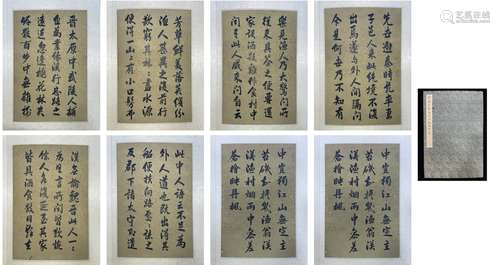 晉太原中武陵人捕
魚為業緣溪行忘路之
遠近忽逢桃花林夾
岸數百步中無雜樹
芳華鮮美落英繽紛
漁人甚異之復前行
欲窮其林林盡水源
便得一山山有小口髣彿
樂見漁人乃大驚問所
從來具答之便要還
家設酒殺雞作食村中
聞有此人咸來問訊自云
先世避秦時亂率妻
子邑人來此絕境不復
出焉遂與外人間隔問
今是何世乃不知有
漢無論魏晉此人一一
為具言所聞皆歎惋
餘人各復延至其家
皆出酒食數日辭去
此中人語云不足為
外人道也既出得其
船便扶向路處處誌之
及郡下詣太守說
獨江山無定主
漁翁溪
漁村煙雨中參差
獨江山無定主
漁翁溪
漁村煙雨中參差